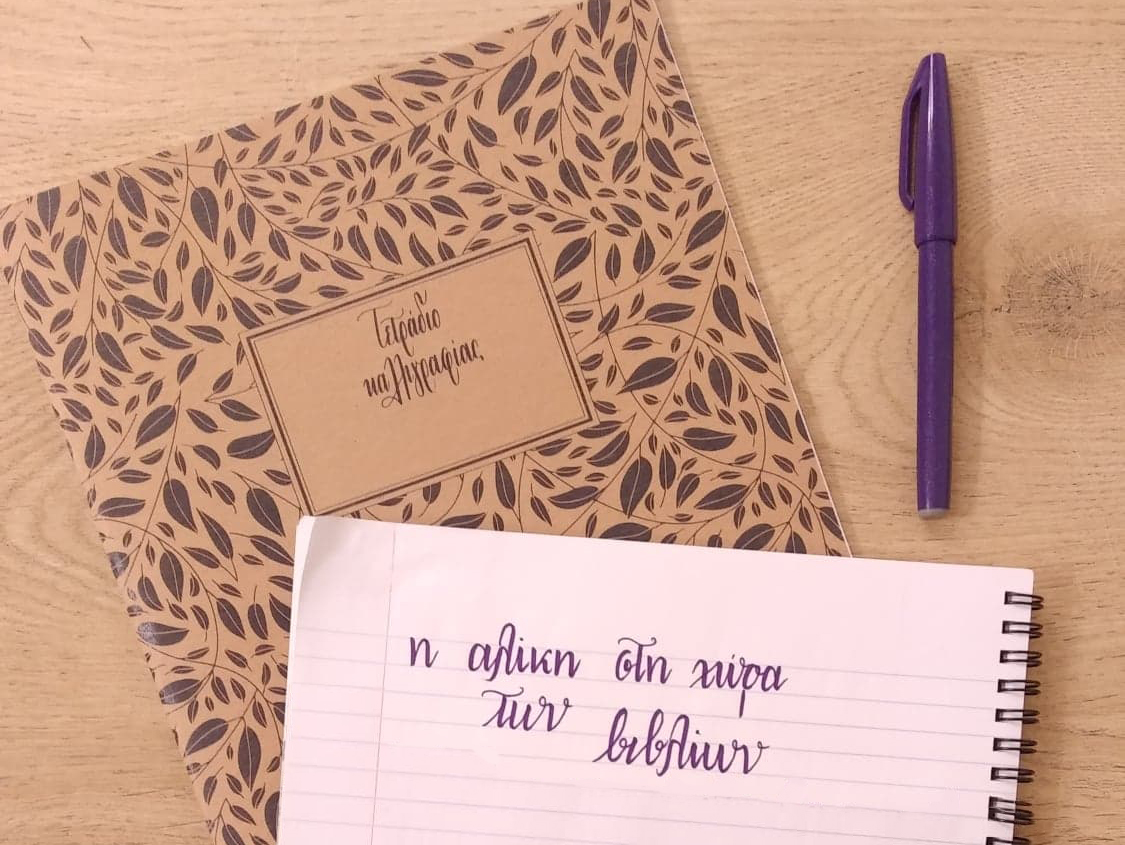 Τετράδιο
καλλιγραφίας
η αλίκη στη χώρα
των
βιβλίων